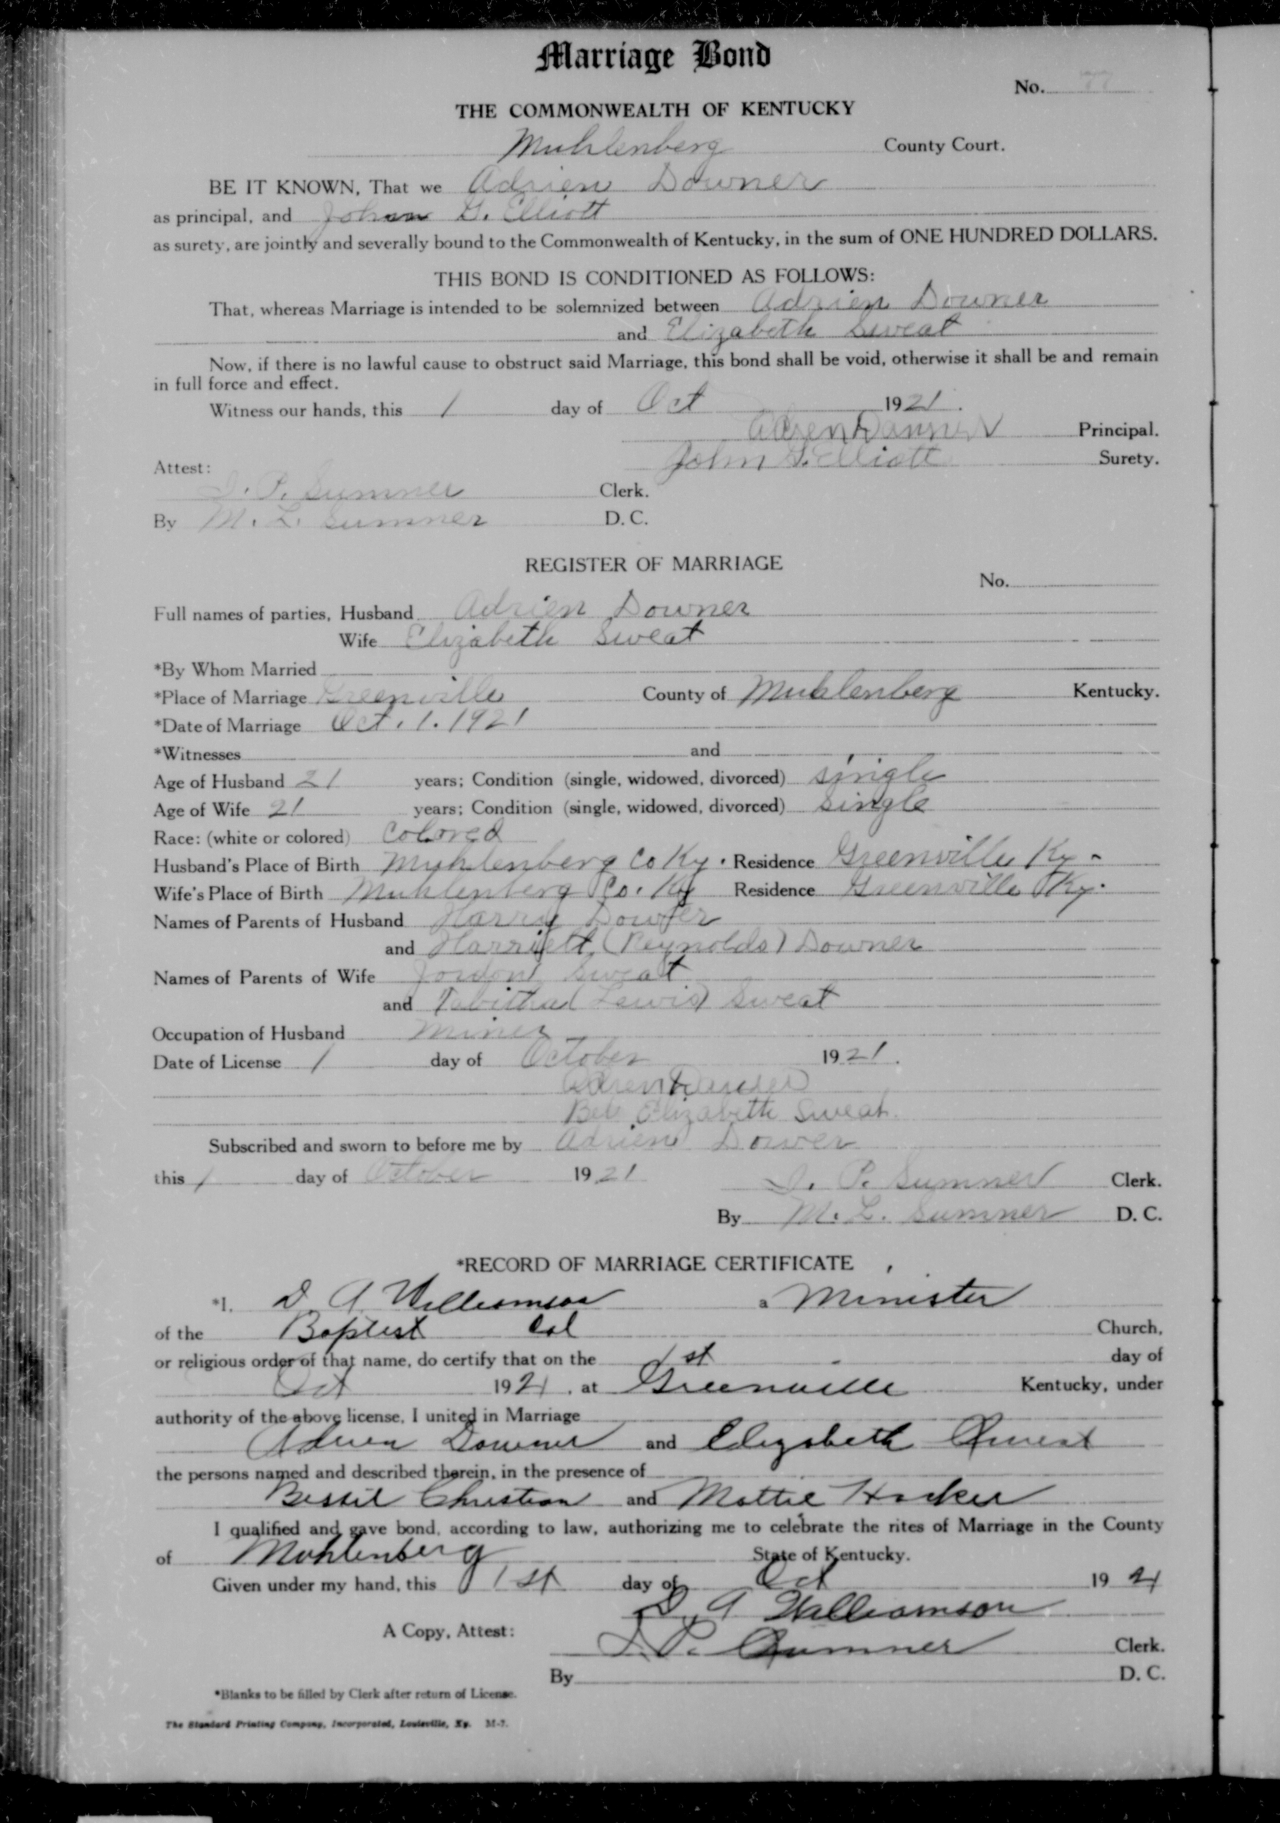 Marriage Bond
No. 77
THE COMMONWEALTH OF KENTUCKY
Muhlenberg County Court.
BE IT KNOWN, That we Adrien Downer
as principal, and John G. Elliott
as surety, are jointly and severally bound to the Commonwealth of Kentucky, in the sum of ONE HUNDRED DOLLARS.
THIS BOND IS CONDITIONED AS FOLLOWS:
That, whereas Marriage is intended to be solemnized between Adrien Downer
and Elizabeth Sweat
Now, if there is no lawful cause to obstruct said Marriage, this bond shall be void, otherwise it shall be and remain
in full force and effect.
Witness our hands, this 1 day of Oct 1921.
Principal.
John G. Elliott Surety.
Attest:
I. P. Sumner Clerk.
By M. L. Sumner D. C.
REGISTER OF MARRIAGE
No.
Full names of parties, Husband Adrien Downer
Wife Elizabeth Sweat
*By Whom Married
*Place of Marriage Greenville County of Muhlenberg Kentucky.
*Date of Marriage Oct. 1. 1921
*Witnesses and
Age of Husband 21 years; Condition (single, widowed, divorced) single
Age of Wife 21 years; Condition (single, widowed, divorced) single
Race: (white or colored) Colored
Husband's Place of Birth Muhlenberg Co Ky. Residence Greenville Ky-
Wife's Place of Birth Muhlenberg Co. Ky Residence Greenville Ky.
Names of Parents of Husband Harry Downer
and Harriett (Reynolds) Downer
Names of Parents of Wife Jordon Sweat
and Tabitha (Lewis) Sweat
Occupation of Husband Miner
Date of License 1 day of October 1921.
Elizabeth Sweat.
Subscribed and sworn to before me by Adrien Dower
this 1 day of October 1921
I. P. Sumner Clerk.
By M. L. Sumner D. C.
*RECORD OF MARRIAGE CERTIFICATE
*I, D. A. Williamson a Minister
of the Baptist Col Church,
or religious order of that name, do certify that on the 1st day of
Oct 1921, at Greenville Kentucky, under
authority of the above license, I united in Marriage
Adrien Downer and Elizabeth
the persons named and described therein, in the presence of
Bessie Christian and Mattie Hocker
I qualified and gave bond, according to law, authorizing me to celebrate the rites of Marriage in the County
of Muhlenberg State of Kentucky.
Given under my hand, this 1st day of Oct 1921
D. A Williamson
A Copy, Attest:
I. P. Sumner Clerk.
By D. C.
*Blanks to be filled by Clerk after return of License.
The Standard Printing Company, Incorporated, Louisville, Ky. M-7.